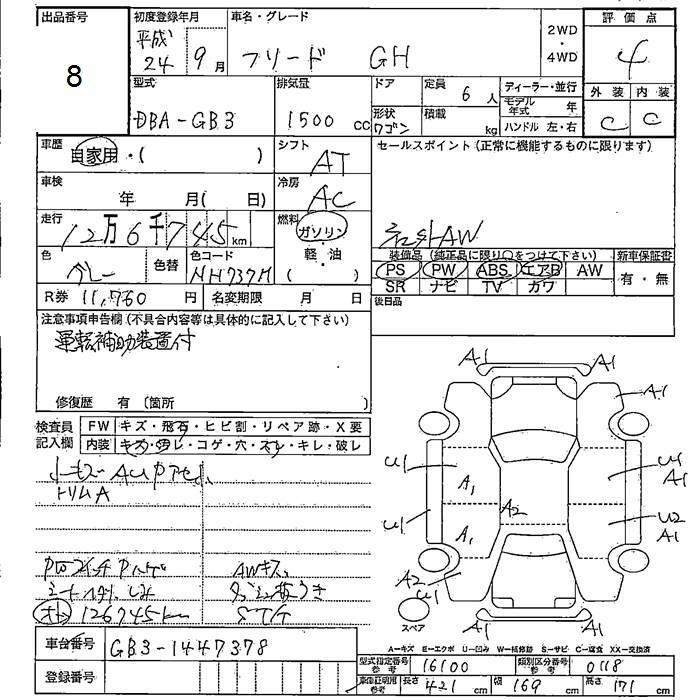 出品番号
8
初度登録年月
平成
24 9月
車名・グレード
フリード GH
2WD
・
4WD
評価点
4
外装 内装
C C
型式
DBA-GB3
排気量
1500 CC
ドア
形状
ワゴン
定員
6人
積載
kg
ディーラー・並行
モデル年式 年
ハンドル 左・右
車歴
自家用・( )
シフト
AT
セールスポイント(正常に機能するものに限ります)
社外AW
車検
年 月( 日)
冷房
AC
走行
12万6千745km
燃料
ガソリン
軽・油
( )
色
グレー
色替
色コード
NH737M
R券 11,760円
名変期限 月 日
装備品(純正品に限り○をつけて下さい)
PS PW ABS エアB AW
SR ナビ TV カワ
新車保証書
有・無
後日品
注意事項申告欄(不具合内容等は具体的に記入して下さい)
運転補助装置付
修復歴 有〔箇所 〕
検査員
記入欄
FW キズ・飛石・ヒビ割・リペア跡・X要
内装 キズ・汚レ・コゲ・穴・スレ・キレ・破レ
トリムA
AWキズ
126745km
STG
A1 A1
A1
U1 A1
U1 A1
U1 A1 A2
U2 A1
A2 U1
A1 A1
スペア
A-キズ E-エクボ U-凹み W-補修跡 S-サビ C-腐食 XX-交換済
車台番号 GB3-1447378
登録番号
型式指定番号
参考
16100
類別区分番号
参考
0118
車庫証明用
参考
長さ 421cm
幅 169cm
高さ 171cm